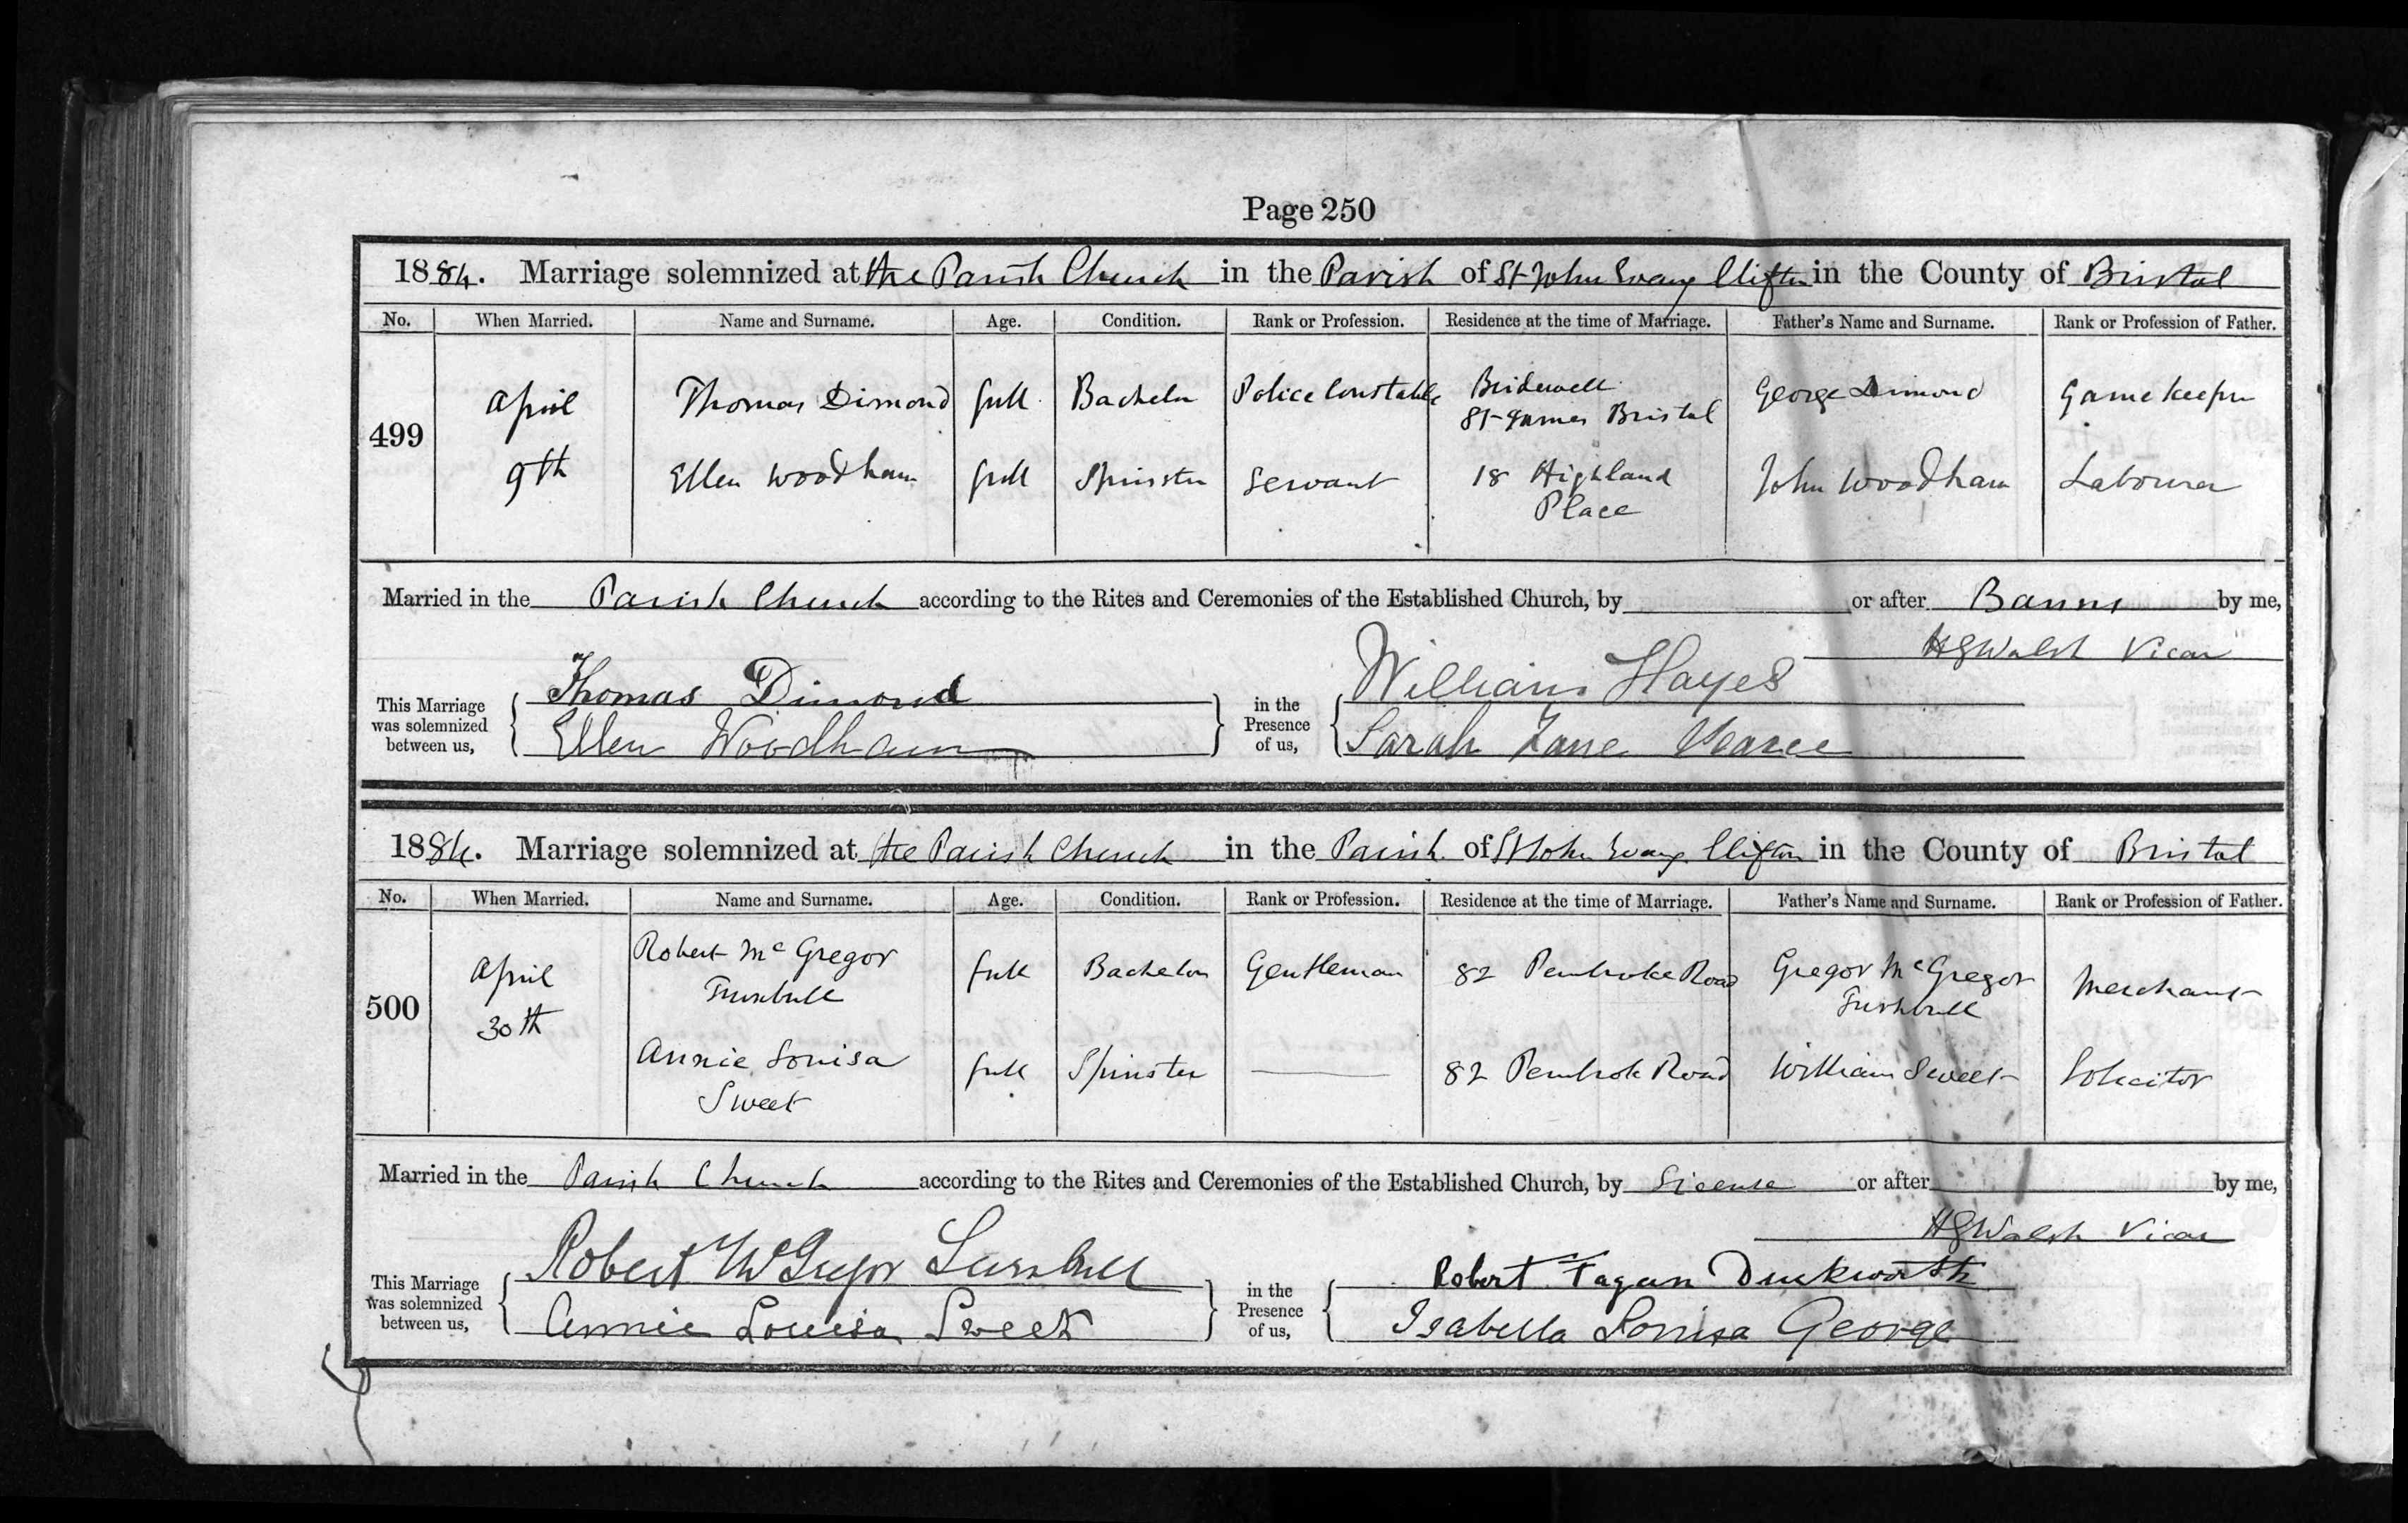 Page 250
1884. Marriage solemnized at the Parish Church in the Parish of St John Evang Clifton in the County of Bristol
No. When Married. Name and Surname. Age. Condition. Rank or Profession. Residence at the time of Marriage. Father's Name and Surname. Rank or Profession of Father.
499
April 9th
Thomas Dimond full Bachelor Police Constable Bridewell St James Bristol George Dimond Game keeper
Ellen Woodham full Spinster Servant 18 Highland Place John Woodham Labourer
Married in the Parish Church according to the Rites and Ceremonies of the Established Church, by or after Banns by me,
HGWalsh Vicar
This Marriage was solemnized between us,
Thomas Dimond
Ellen Woodham
in the Presence of us,
William Hayes
Sarah Jane Pearce
1884. Marriage solemnized at the Parish Church in the Parish of St John Evang Clifton in the County of Bristol
No. When Married. Name and Surname. Age. Condition. Rank or Profession. Residence at the time of Marriage. Father's Name and Surname. Rank or Profession of Father.
500
April 30th
Robert McGregor Turnbull full Bachelor Gentleman 82 Pembroke Road Gregor McGregor Turnbull Merchant
Annie Louisa Sweet full Spinster 82 Pembroke Road William Sweet Solicitor
Married in the Parish Church according to the Rites and Ceremonies of the Established Church, by License or after by me,
HGWalsh Vicar
This Marriage was solemnized between us,
Robert McGregor Turnbull
Annie Louisa Sweet
in the Presence of us,
Robert Fagan Duckworth
Isabella Louisa George